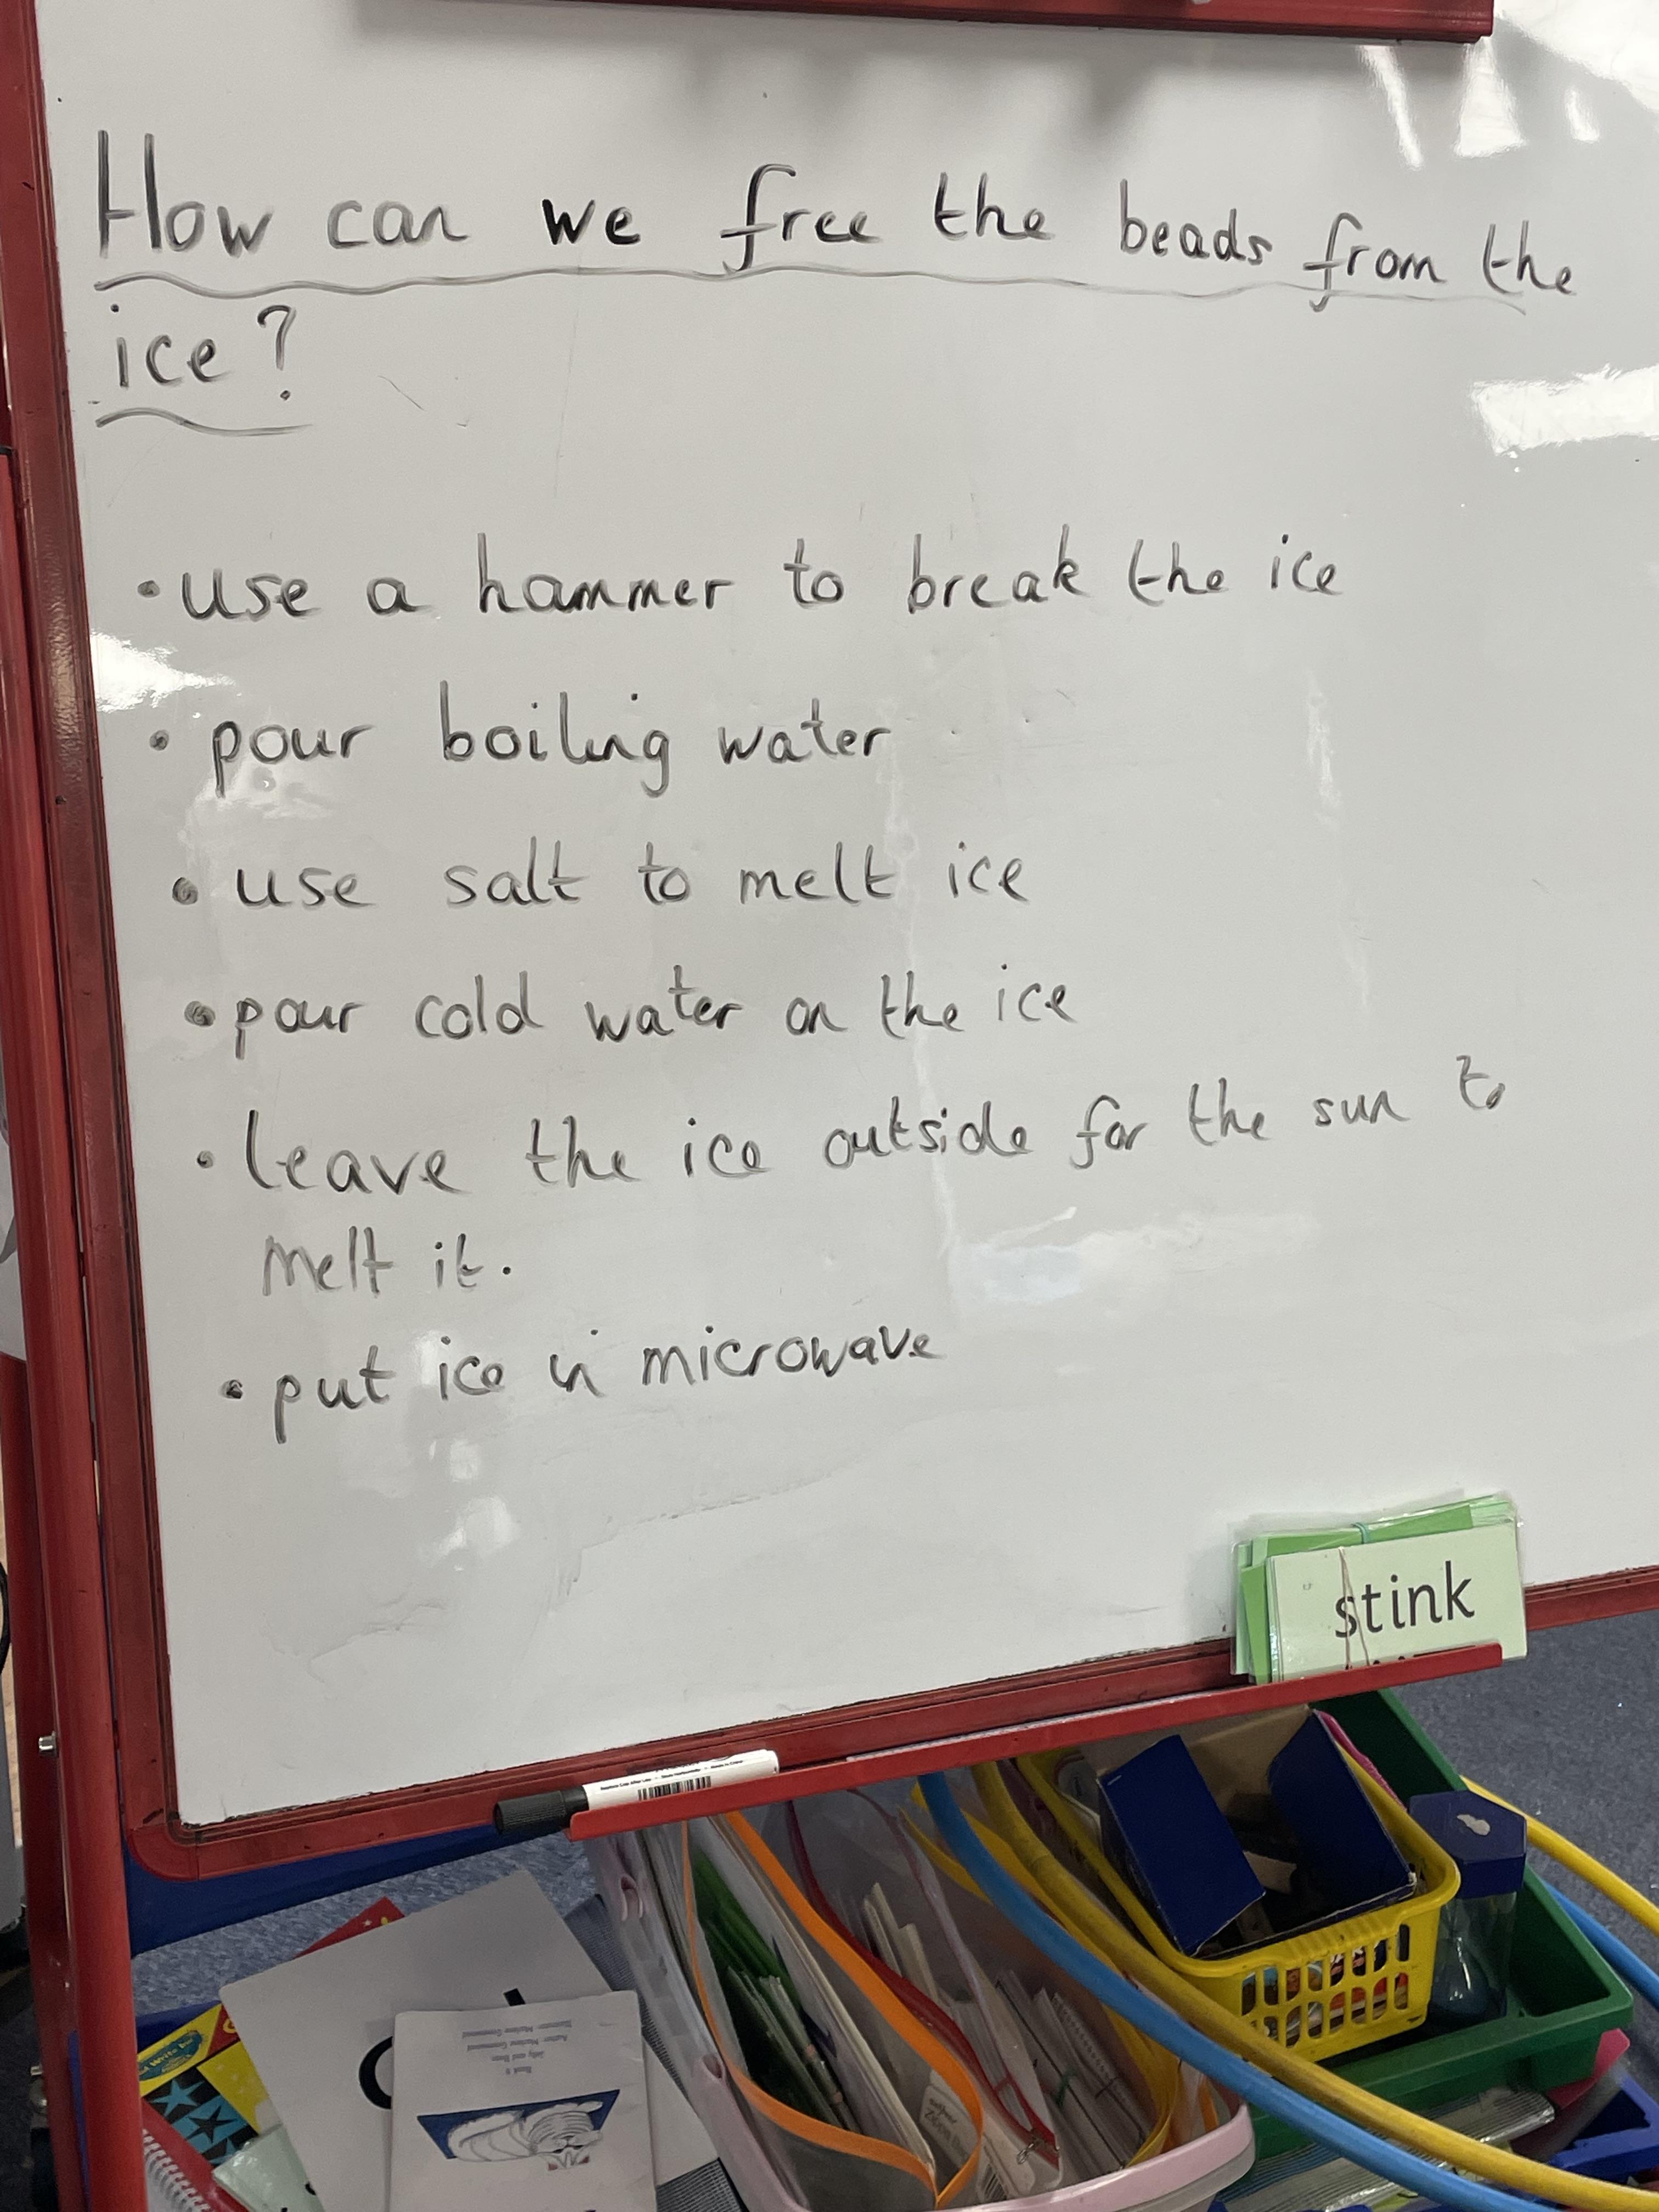 How can we free the beads from the
ice?
• use a hammer to break the ice
• pour boiling water
• use salt to melt ice
• pour cold water on the ice
• leave the ice outside for the sun to
melt it.
• put ice in microwave
stink